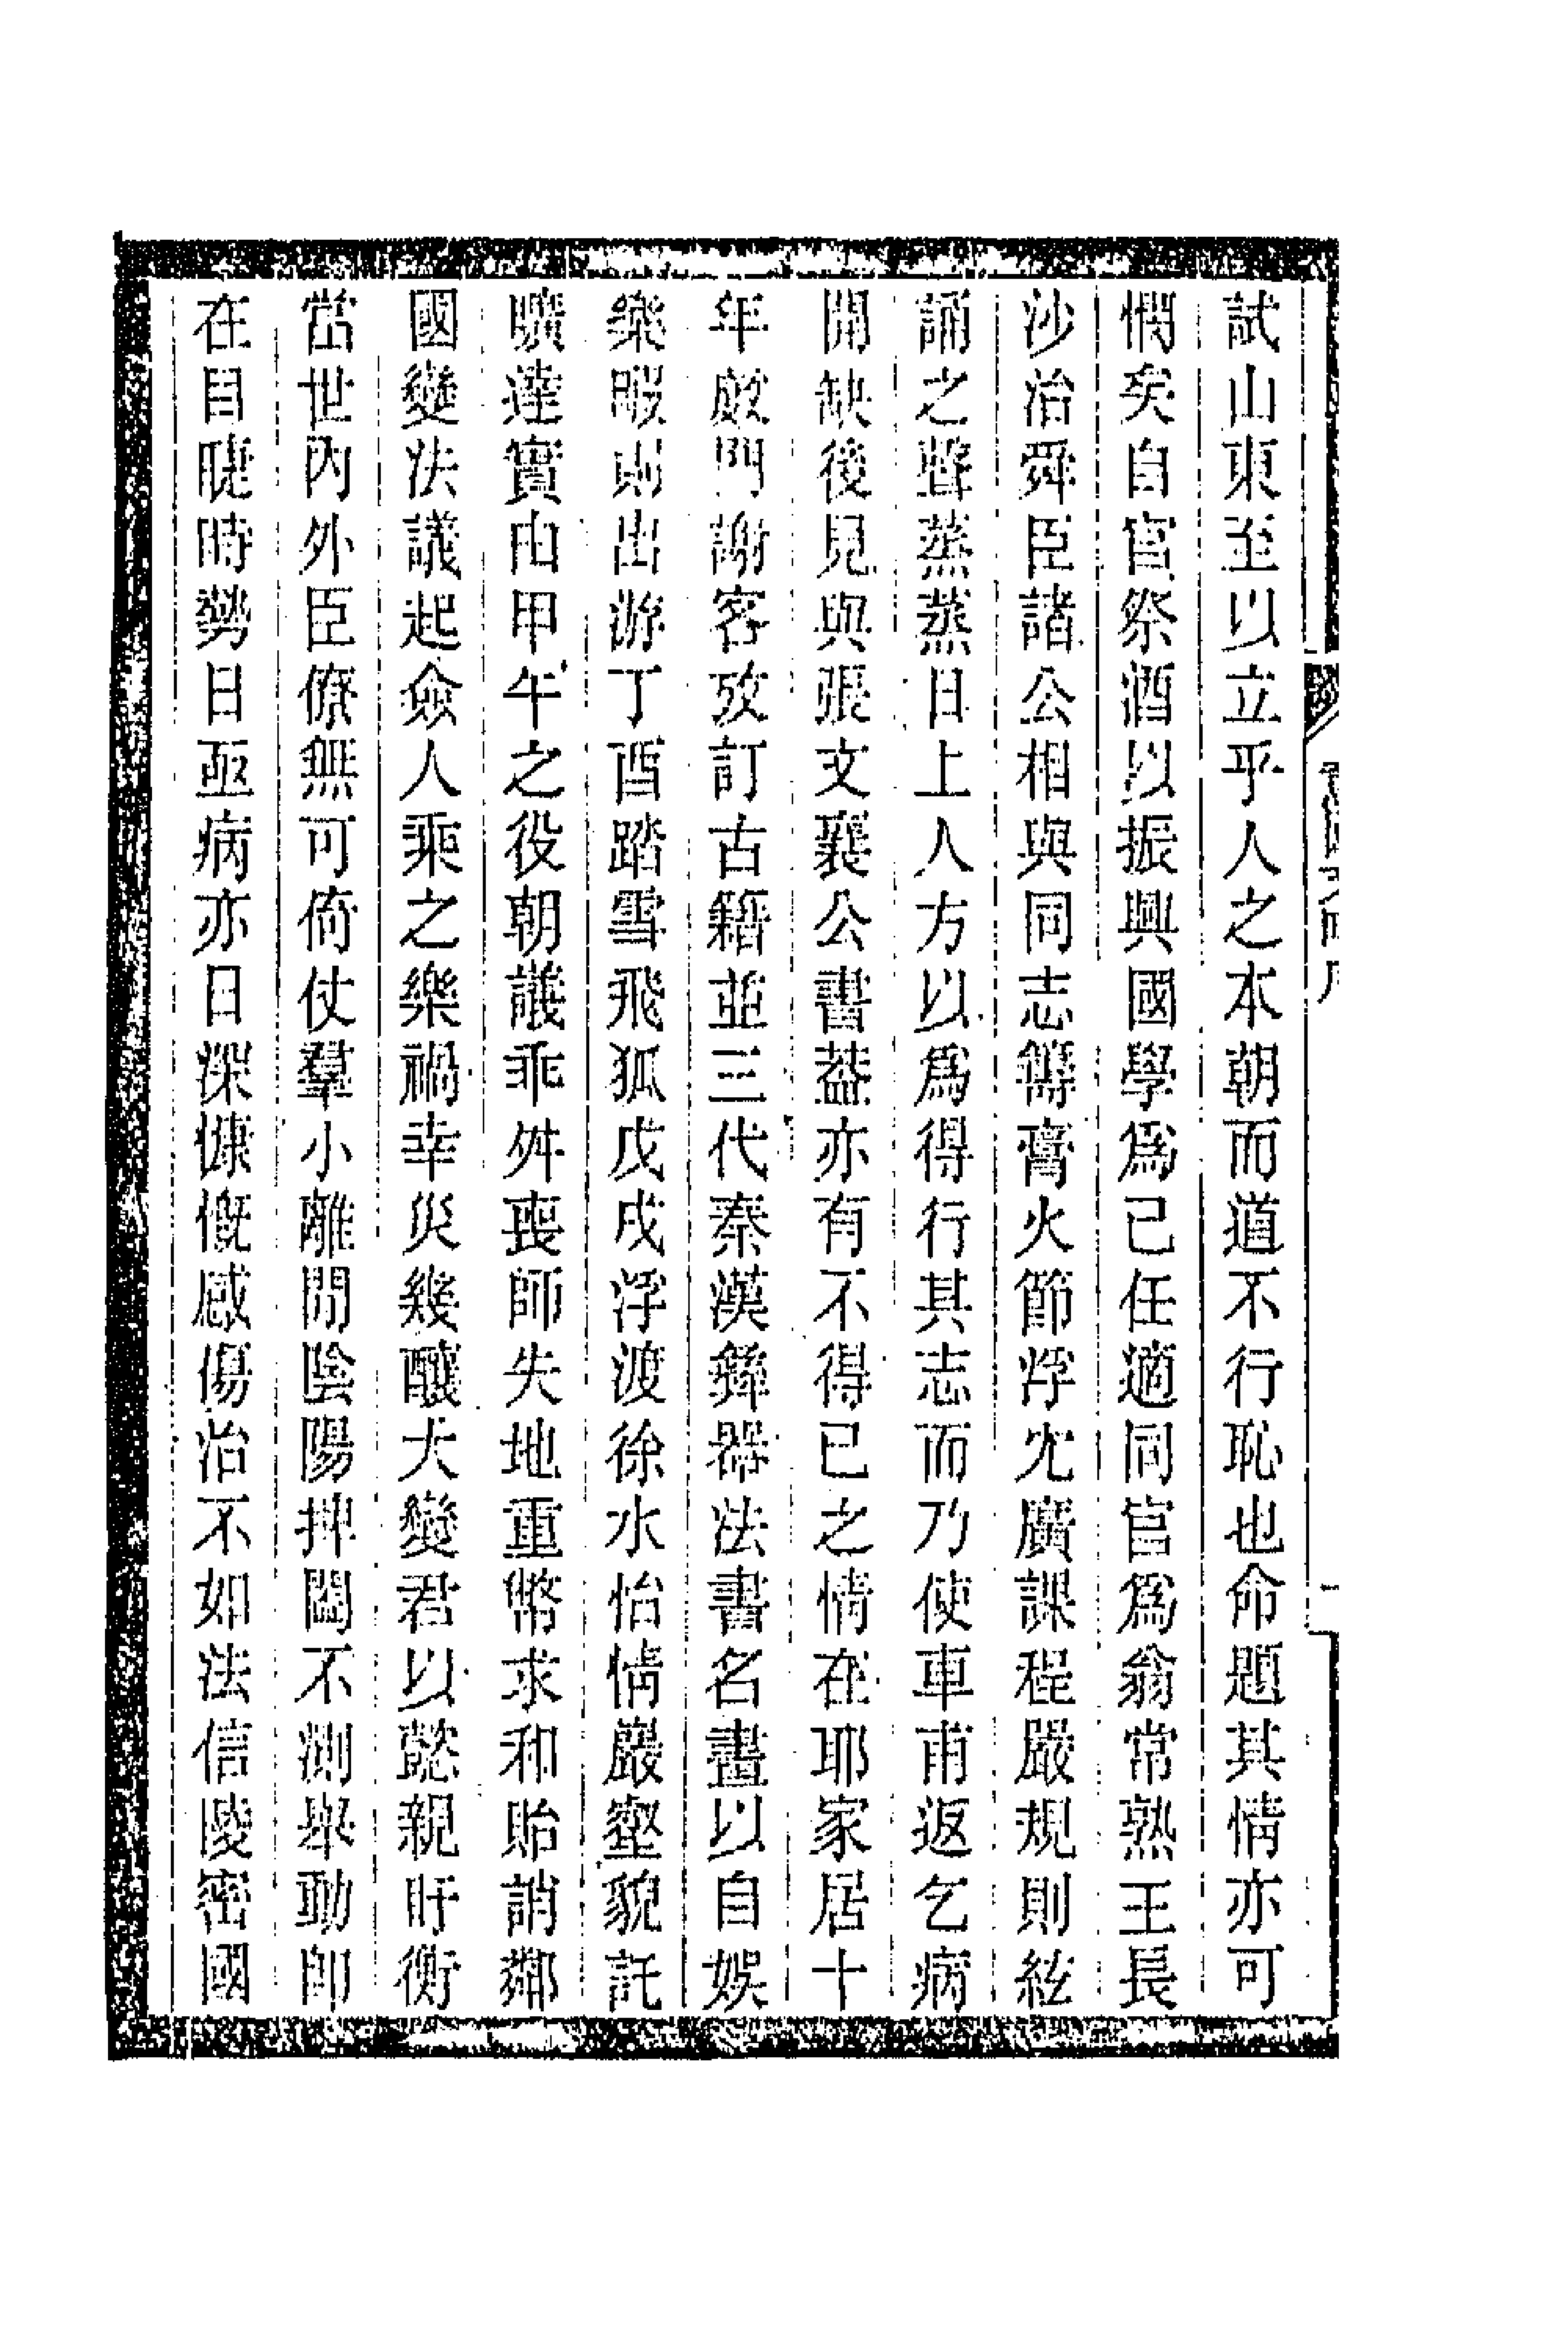 試山東至以立乎人之本朝而道不行恥也命題其情亦可
憫矣自官祭酒以振興國學爲己任適同官爲翁常熟王長
沙治舜臣諸公相與同志籌膏火節浮冗廣課程嚴規則絃
誦之聲蒸蒸日上人方以爲得行其志而乃使車甫返乞病
開缺後見與張文襄公書葢亦有不得已之情在耶家居十
年廠門謝客攷訂古籍並三代秦漢彝器法書名畫以自娛
樂暇則出游丁酉踏雪飛狐戊戌浮渡徐水怡情巖壑貌託
曠達實由甲午之役朝議乖舛喪師失地重幣求和貽誚鄰
國變法議起僉人乘之樂禍幸災幾釀大變君以懿親盱衡
當世內外臣僚無可倚仗羣小離閒陰陽捭闔不測舉動卽
在目睫時勢日亟病亦日深慷慨感傷治不如法信陵密國